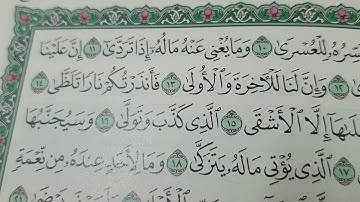 لِلْعُسْرَىٰ ١٠ وَمَا يُغْنِى عَنْهُ مَالُهُۥٓ إِذَا تَرَدَّىٰٓ ١١ إِنَّ عَلَيْنَا
١٢ وَإِنَّ لَنَا لَلْءَاخِرَةَ وَٱلْأُولَىٰ ١٣ فَأَنذَرْتُكُمْ نَارًا تَلَظَّىٰ ١٤
إِلَّا ٱلْأَشْقَى ١٥ ٱلَّذِى كَذَّبَ وَتَوَلَّىٰ ١٦ وَسَيُجَنَّبُهَا
١٧ ٱلَّذِى يُؤْتِى مَالَهُۥ يَتَزَكَّىٰ ١٨ وَمَا لِأَحَدٍ عِندَهُۥ مِن نِّعْمَةٍ